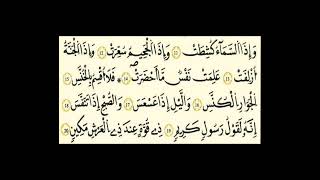 وَإِذَا السَّمَآءُ كُشِطَتْ ۝١١ وَإِذَا الْجَحِيمُ سُعِّرَتْ ۝١٢ وَإِذَا الْجَنَّةُ
أُزْلِفَتْ ۝١٣ عَلِمَتْ نَفْسٌ مَّآ أَحْضَرَتْ ۝١٤ فَلَآ أُقْسِمُ بِالْخُنَّسِ ۝١٥
الْجَوَارِ الْكُنَّسِ ۝١٦ وَالَّيْلِ إِذَا عَسْعَسَ ۝١٧ وَالصُّبْحِ إِذَا تَنَفَّسَ ۝١٨
إِنَّهُ لَقَوْلُ رَسُولٍ كَرِيمٍ ۝١٩ ذِي قُوَّةٍ عِندَ ذِي الْعَرْشِ مَكِينٍ ۝٢٠